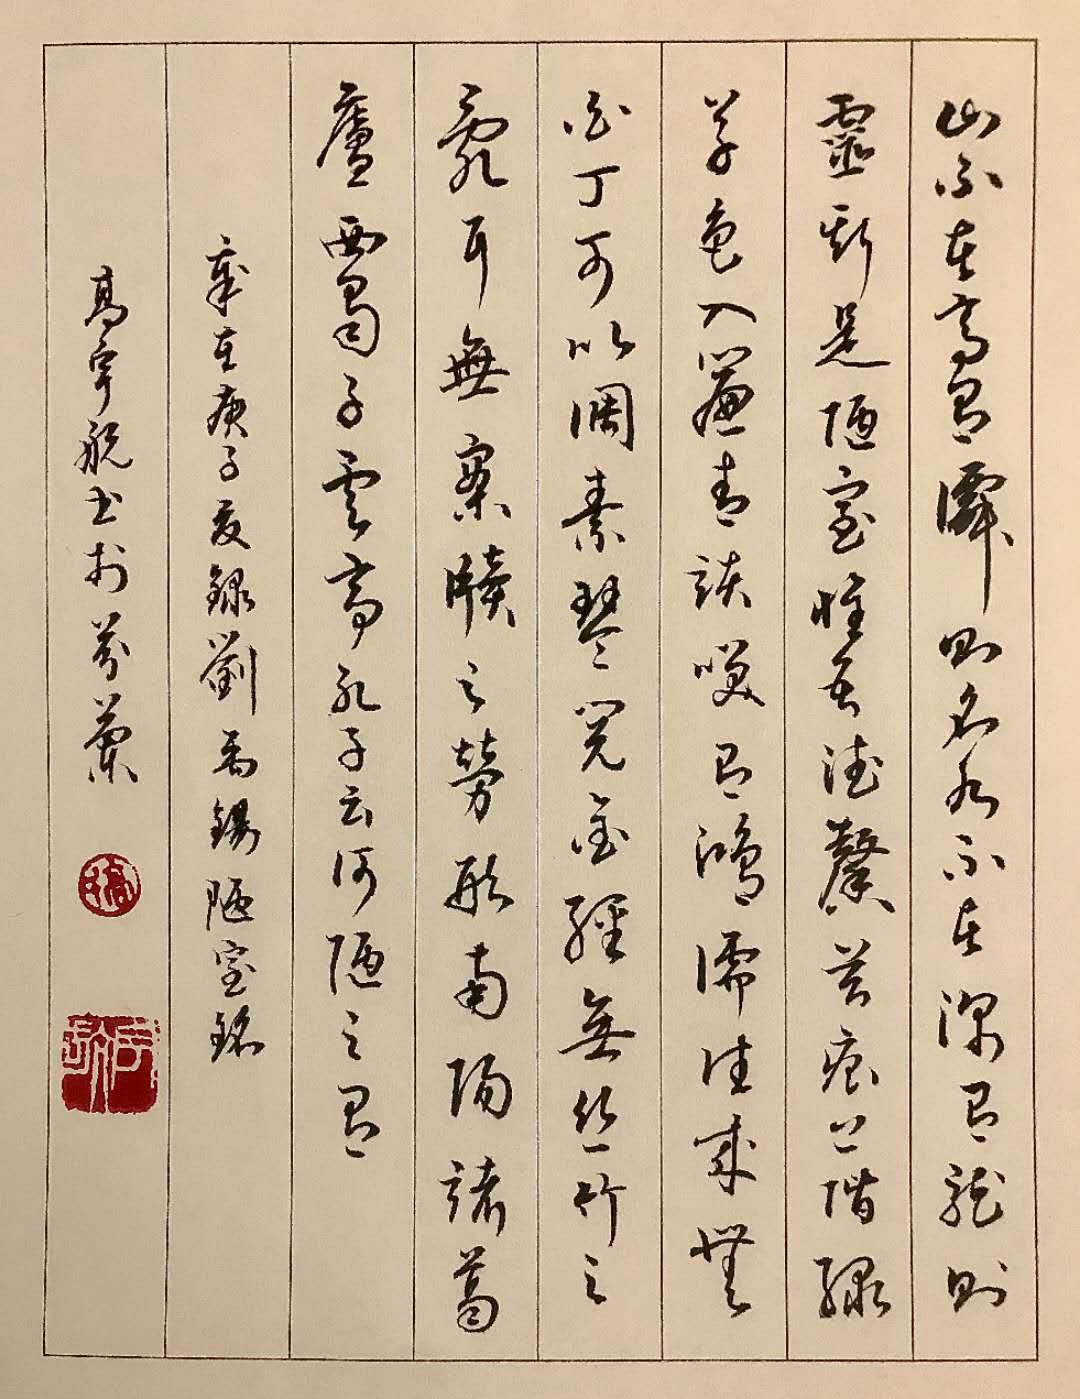 山不在高有僊則名水不在深有龍則
靈斯是陋室惟吾德馨苔痕上階綠
草色入簾青談咲有鴻儒往來無
白丁可以調素琴閱金經無絲竹之
亂耳無案牘之勞形南陽諸葛
廬西蜀子雲亭孔子云何陋之有
歲在庚子夏錄劉禹錫陋室銘
高宇航書於芬蘭